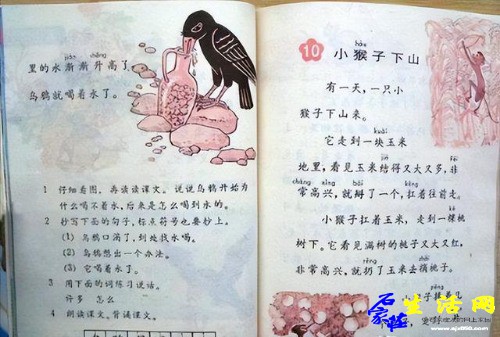 jiàn shēng
里的水渐渐升高了,
乌鸦就喝着水了。
1 仔细看图,再读读课文。说说乌鸦开始为
什么喝不着水,后来是怎么喝到水的。
2 抄写下面的句子,标点符号也要抄上。
(1) 乌鸦口渴了,到处找水喝。
(2) 乌鸦想出一个办法。
(3) 它喝着水了。
3 用下面的词练习说话。
许多 怎么
4 朗读课文。背诵课文。
10 小猴子下山
hóu
有一天,一只小
猴子下山来。
kuài
它走到一块玉米
jiē fēi
地里,看见玉米结得又大又多,非
cháng xìng bāi káng
常高兴,就掰了一个,扛着往前走。
小猴子扛着玉米,走到一棵桃
树下。它看见满树的桃子又大又红,
rēng zhāi
非常高兴,就扔了玉米去摘桃子。
pěng
子捧着几
生活网
www.sjz859.com